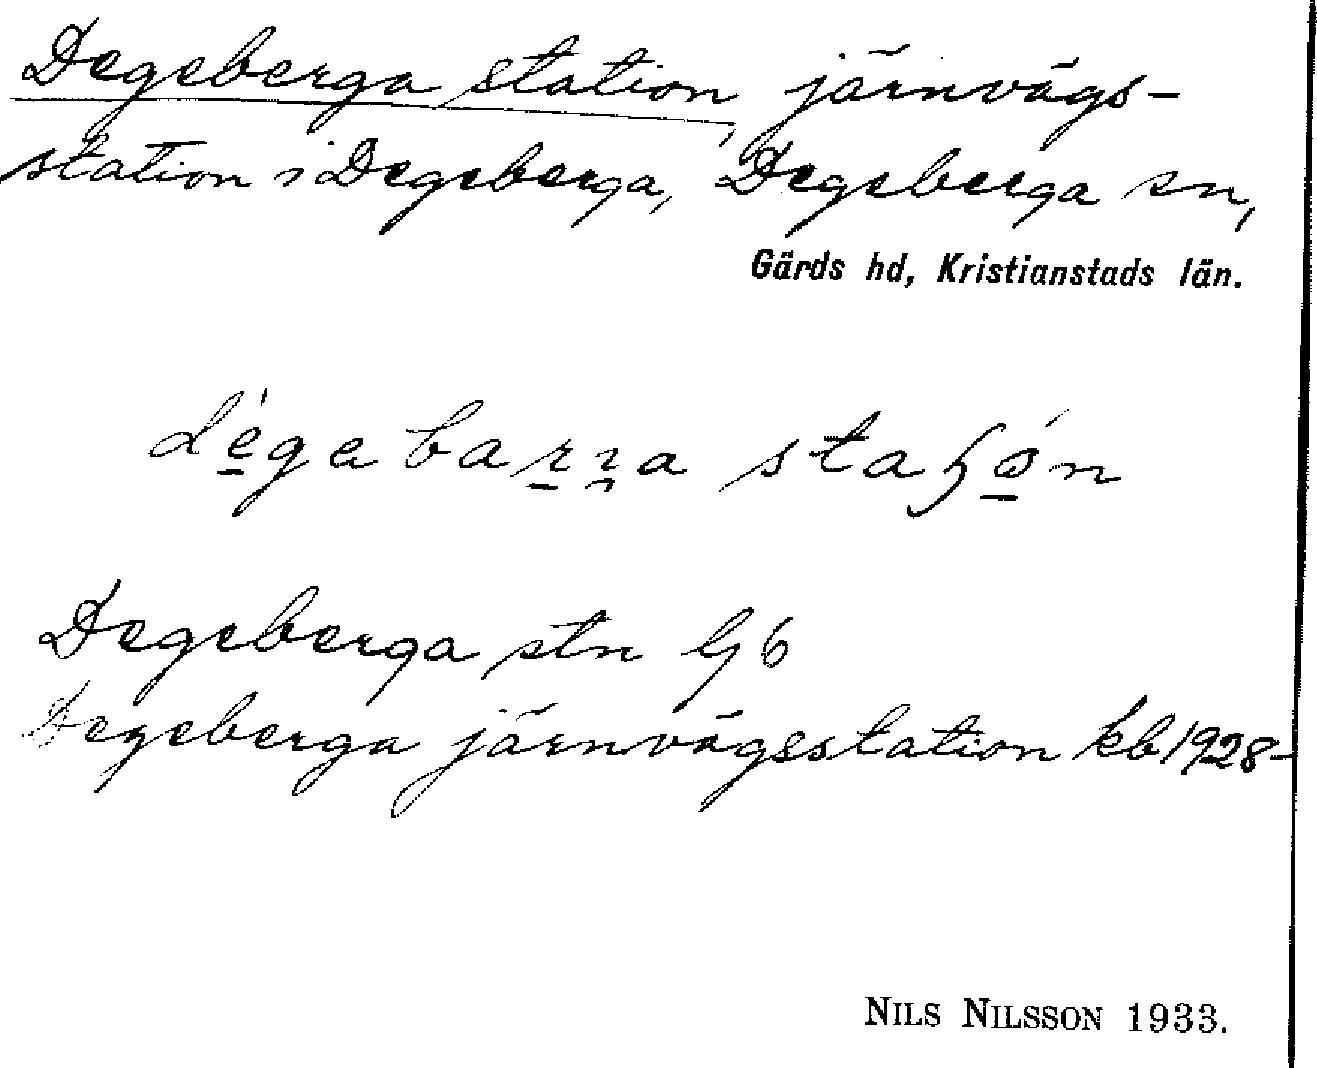 Degeberga station, järnvägs-
station i Degeberga, Degeberga sn,
Gärds hd, Kristianstads län.
Degeberga stn Gb
Degeberga järnvägsstation kb 1928-
NILS NILSSON 1933.